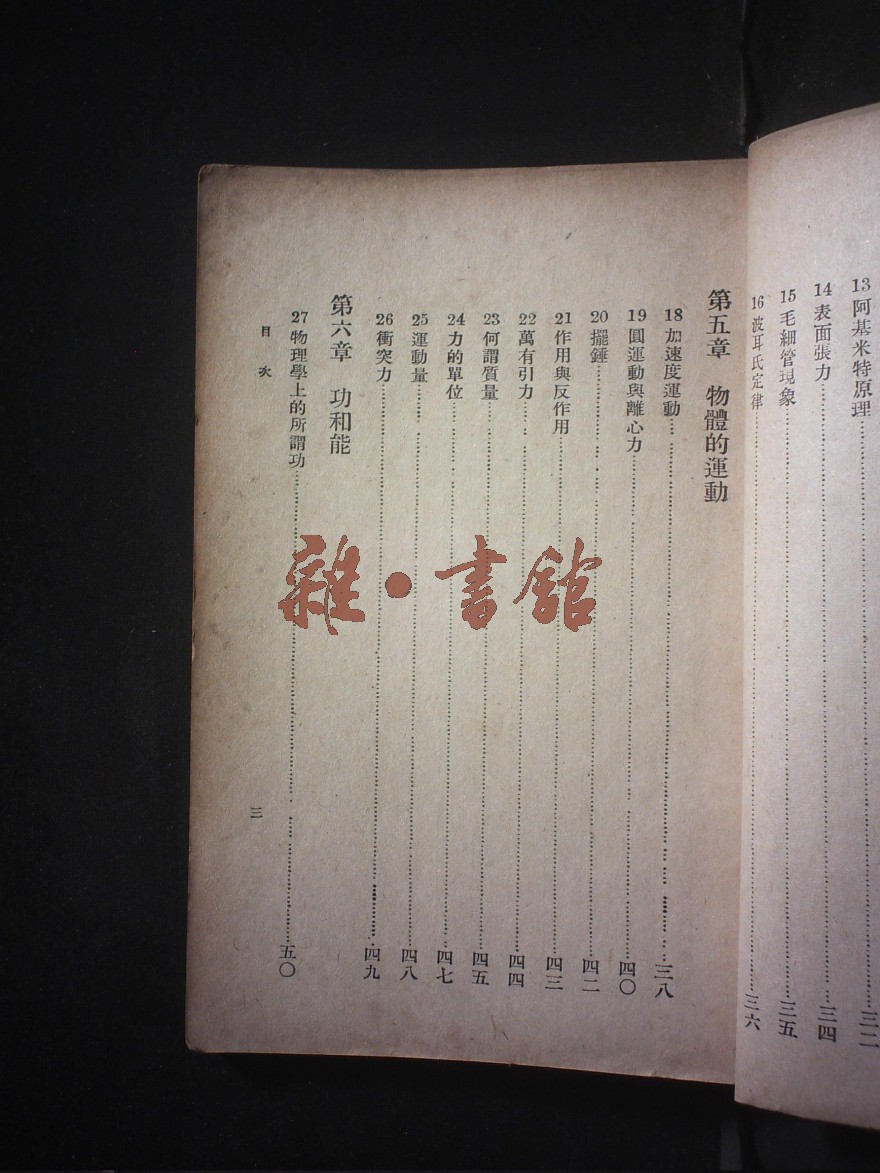 13 阿基米特原理……三二
14 表面張力……三四
15 毛細管現象……三五
16 波耳氏定律……三六
第五章 物體的運動
18 加速度運動……三八
19 圓運動與離心力……四〇
20 擺錘……四二
21 作用與反作用……四三
22 萬有引力……四四
23 何謂質量……四五
24 力的單位……四七
25 運動量……四八
26 衝突力……四九
第六章 功和能
27 物理學上的所謂功……五〇
目次
三
雜·書館